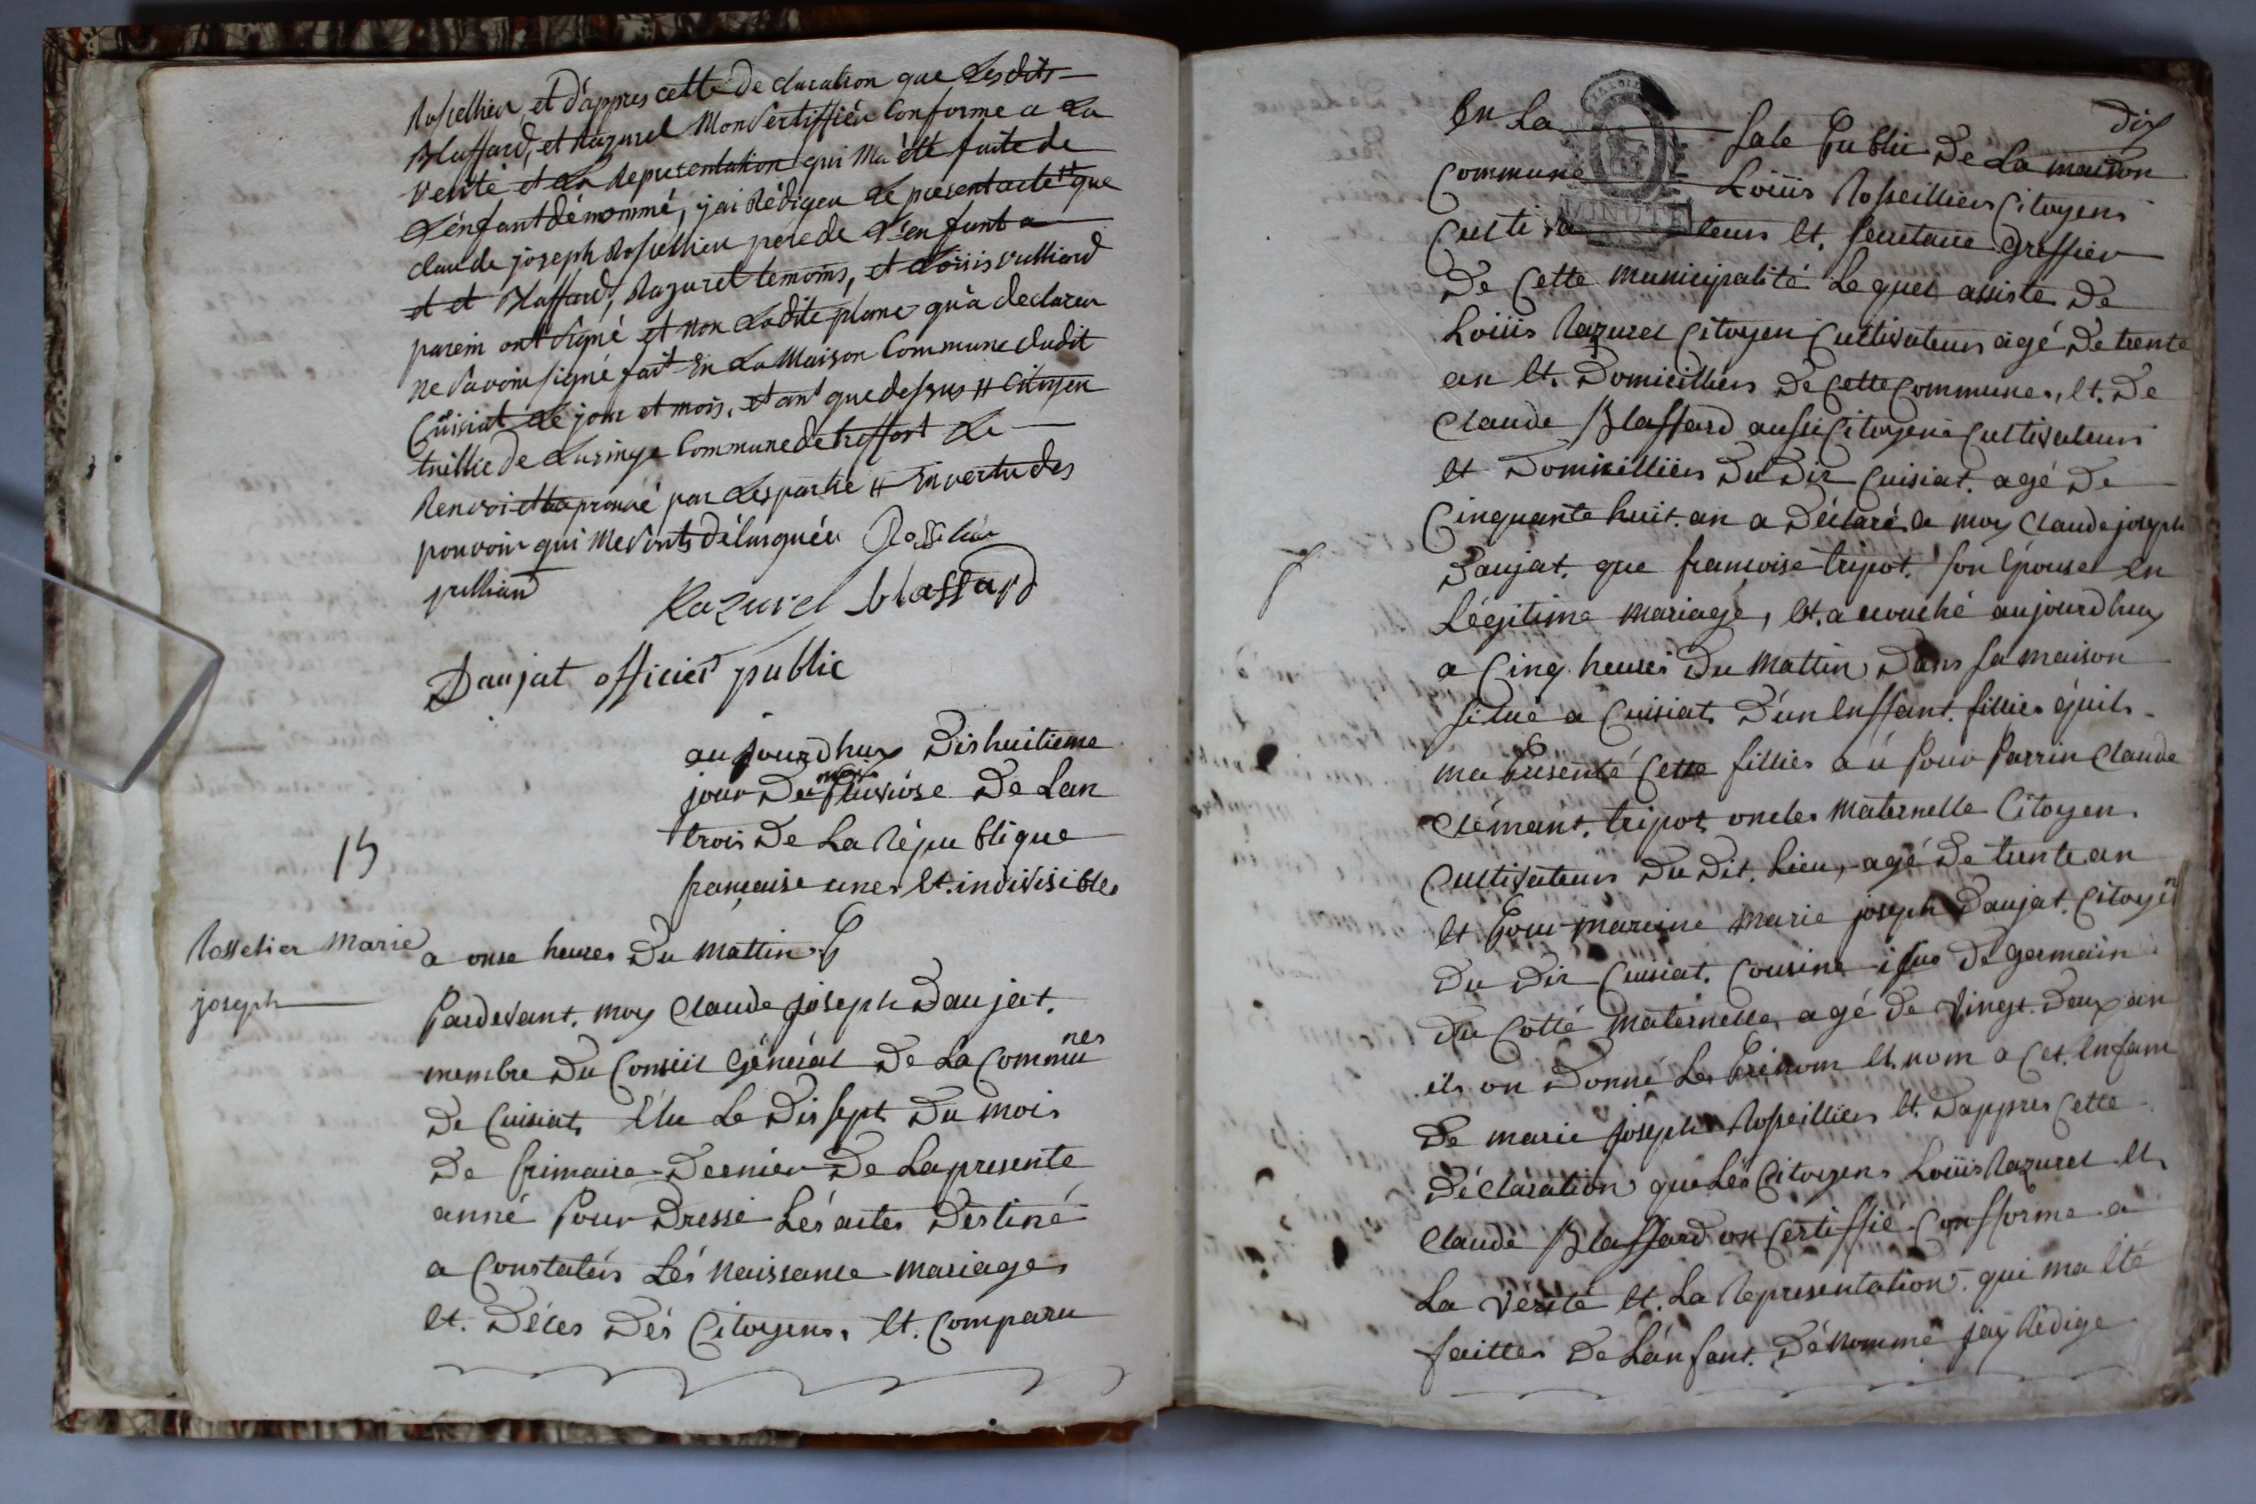 Rossellier, et d'appres cette declaration que Lesdits
Blaffard, et Razurel Mon Certiffiér Conforme a La
Verité et La Representation qui Ma été faite de
L'énfant dénommé, j'ai Rédigeu Le present acte et que
claude joseph Rossellier pere de L'enfant a
et et Blaffard, Razurel temoins, et Loüis vulliard
parein ont signé et non Ladite plane qu'a declarer
ne savoir signé fait En La Maison Commune dudit
Cuisiat Le jour et mois, et ant que dessus # Citoyen
de Lusinge Commune de treffort Le
Renvoi et aprouvé par Lesparlie # En vertu des
pouvoir qui Me sonts délueguér Rossilier
pulliand
Razurel blaffard
Daujat officier public
aujourdhuy Dishuitieme
jour Du mois Pluviôse De Lan
trois De La Répu blique
francaise une et. indivisibles
15
Rosselier Marie
joseph
a onse heures Du Mattin
Pardevant. moy Claude joseph Daujat.
membre Du Conseil Général De La Communes
De Cuisiat, Élu Le Dissept Du mois
De frimaire Dernier De La presente
anné Pour Dressé Lés actes Destiné
a Constatér Lés Naissance Mariages
et. Déces Dés Citoyens, et. Comparu
dix
En La Sale Public De La maison
Commune Loüis Rosseilliers Citoyens
Cultivateurs et. Secretaire Greffier
De Cette Municipalité Lequel assiste De
Loüis Razurel Citoyen Cultivateurs agé De trente
an et. Domicilliérs De Cette Commune, et. De
Claude Blaffard aussi Citoyens Cultivateurs
et Domicilliérs Du Dit Cuisiat. agé De
Cinquante huit. an a Déclaré a moy Claude joseph
Daujat. que francoise tripot. son Épouse En
Légitime Mariage, et. a acouché aujourdhuy
a Cinq heures Du Mattin Dans sa maison
situé a Cuisiat D'un Enffant. fillies qu'ils
ma Présenté Cette fillies a ü Pour Parrin Claude
Clémant. tripot oncles Maternelle Citoyen
Cultivateurs Du Dit. Lieu, agé De trente an
et Pour Mareine Marie joseph Daujat. Citoyen
Du Dit Cuisiat. Cousine isue De germain
Du Cotté Maternelle agé De Vingt. Deux an
ils on Donné Les Prénom et. nom a Cet. Enfant
De Marie Joseph Rosseilliers et. Dappres Cette
Déclaration que Lés Citoyens Loüis Razurel et
Claude Blaffard on Certiffié Confforme a
La Verité et. La Représentation qui ma été
faittes De Lénfant. Dénommé jay Rédigé